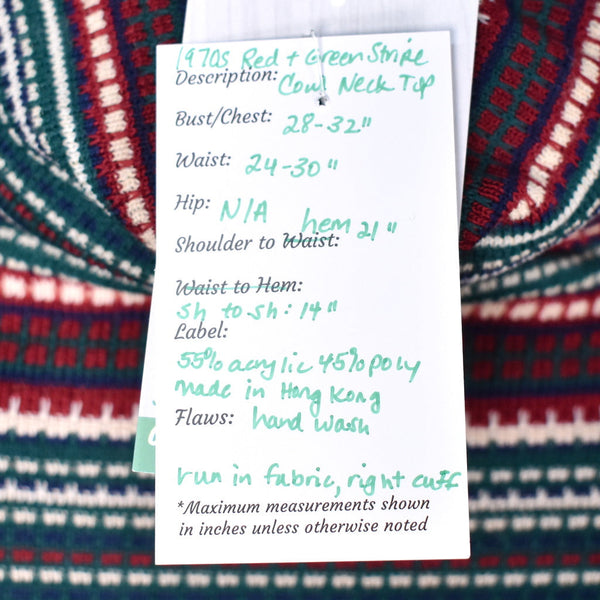 1970s Red + Green Stripe
Description: Cowl Neck Top
Bust/Chest: 28-32"
Waist: 24-30"
Hip: N/A
Shoulder to Waist: hem 21"
Waist to Hem:
sh to sh: 14"
Label:
55% acrylic 45% poly
made in Hong Kong
Flaws: hand wash
run in fabric, right cuff
*Maximum measurements shown
in inches unless otherwise noted